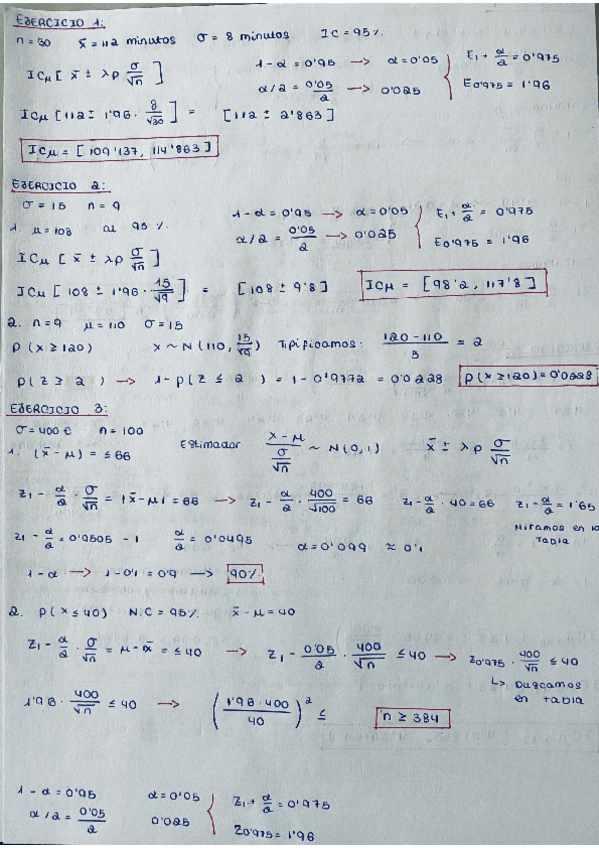 EJERCICIO 1:
n = 30   x̄ = 112 minutos   σ = 8 minutos   IC = 95%
ICμ [ x̄ ± λp σ/√n ]   1 - α = 0'95 → α = 0'05   E1 + α/2 = 0'975
α/2 = 0'05/2 → 0'025   E0'975 = 1'96
ICμ [ 112 ± 1'96 · 8/√30 ] = [ 112 ± 2'863 ]
ICμ = [ 109'137, 114'863 ]
EJERCICIO 2:
σ = 15   n = 9
1 - α = 0'95 → α = 0'05   E1 + α/2 = 0'975
1. μ = 108   al 95%   α/2 = 0'05/2 → 0'025   E0'975 = 1'96
ICμ [ x̄ ± λp σ/√n ]
ICμ [ 108 ± 1'96 · 15/√9 ] = [ 108 ± 9'8 ]   ICμ = [ 98'2, 117'8 ]
2. n = 9   μ = 110   σ = 15
P ( x ≥ 120 )   x ~ N ( 110, 15/√9 )   Tipificamos: 120 - 110/5 = 2
P ( Z ≥ 2 ) → 1 - P ( Z ≤ 2 ) = 1 - 0'9772 = 0'0228   P ( x ≥ 120 ) = 0'0228
EJERCICIO 3:
σ = 400 €   n = 100
1. (x̄ - μ) = ≤ 66   Estimador   x - μ / σ/√n ~ N ( 0, 1 )   x̄ ± λp σ/√n
Z1 - α/2 · σ/√n = |x̄ - μ| = 66 → Z1 - α/2 · 400/√100 = 66   Z1 - α/2 · 40 = 66   Z1 - α/2 = 1'65
Miramos en la
tabla
Z1 - α/2 = 0'9505 - 1   α/2 = 0'0495   α = 0'099 ≈ 0'1
1 - α → 1 - 0'1 = 0'9 → 90%
2. P ( x ≤ 40 )   N.C = 95%   x̄ - μ = 40
Z1 - α/2 · σ/√n = μ - x̄ = ≤ 40 → Z1 - 0'05/2 · 400/√n ≤ 40 → Z0'975 · 400/√n ≤ 40
↳ Buscamos
en tabla
1'96 · 400/√n ≤ 40 → ( 1'96 · 400 / 40 )² ≤   n ≥ 384
1 - α = 0'95   α = 0'05   Z1 + α/2 = 0'975
α/2 = 0'05/2   0'025   Z0'975 = 1'96